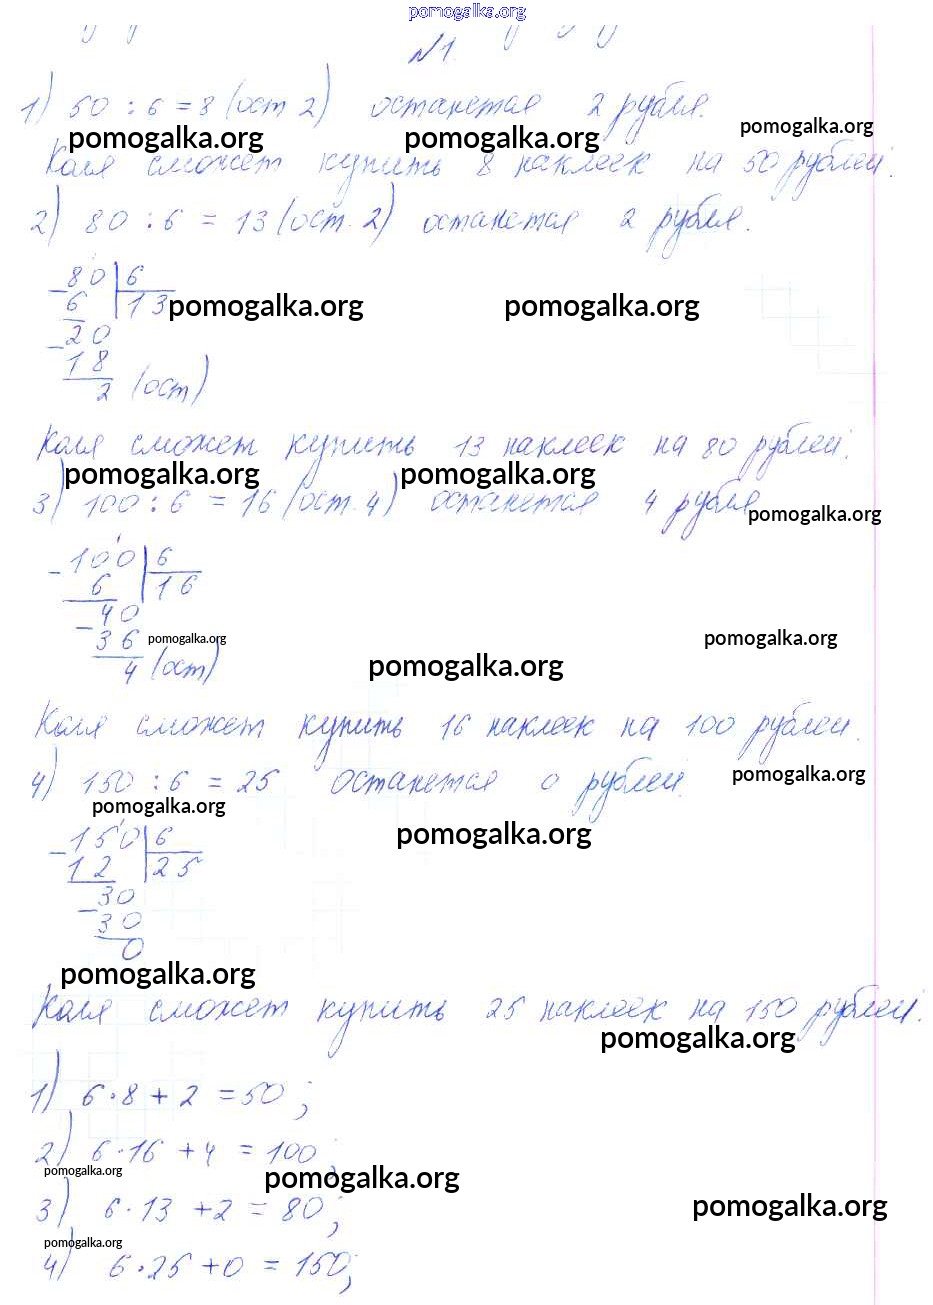 pomogalka.org
№1.
1) 50 : 6 = 8 (ост 2) останется 2 рубля.
pomogalka.org pomogalka.org pomogalka.org
Коля сможет купить 8 наклеек на 50 рублей.
2) 80 : 6 = 13 (ост. 2) останется 2 рубля.
80 6
6 13
pomogalka.org pomogalka.org
20
18
2 (ост)
Коля сможет купить 13 наклеек на 80 рублей.
pomogalka.org pomogalka.org
3) 100 : 6 = 16 (ост. 4) останется 4 рубля
pomogalka.org
100 6
6 16
40
36
pomogalka.org pomogalka.org
4 (ост)
pomogalka.org
Коля сможет купить 16 наклеек на 100 рублей.
4) 150 : 6 = 25 останется 0 рублей.
pomogalka.org
pomogalka.org
150 6
pomogalka.org
12 25
30
30
0
pomogalka.org
Коля сможет купить 25 наклеек на 150 рублей.
pomogalka.org
1) 6·8 + 2 = 50;
2) 6·16 + 4 = 100;
pomogalka.org pomogalka.org
3) 6·13 + 2 = 80;
pomogalka.org
pomogalka.org
4) 6·25 + 0 = 150;